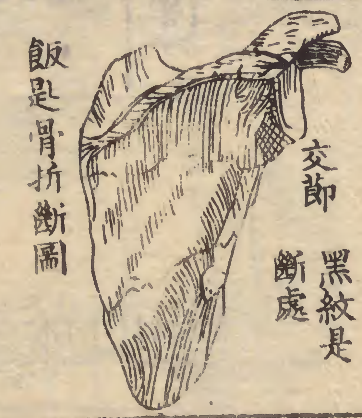 黑紋是
斷處
交節
飯匙骨折斷圖